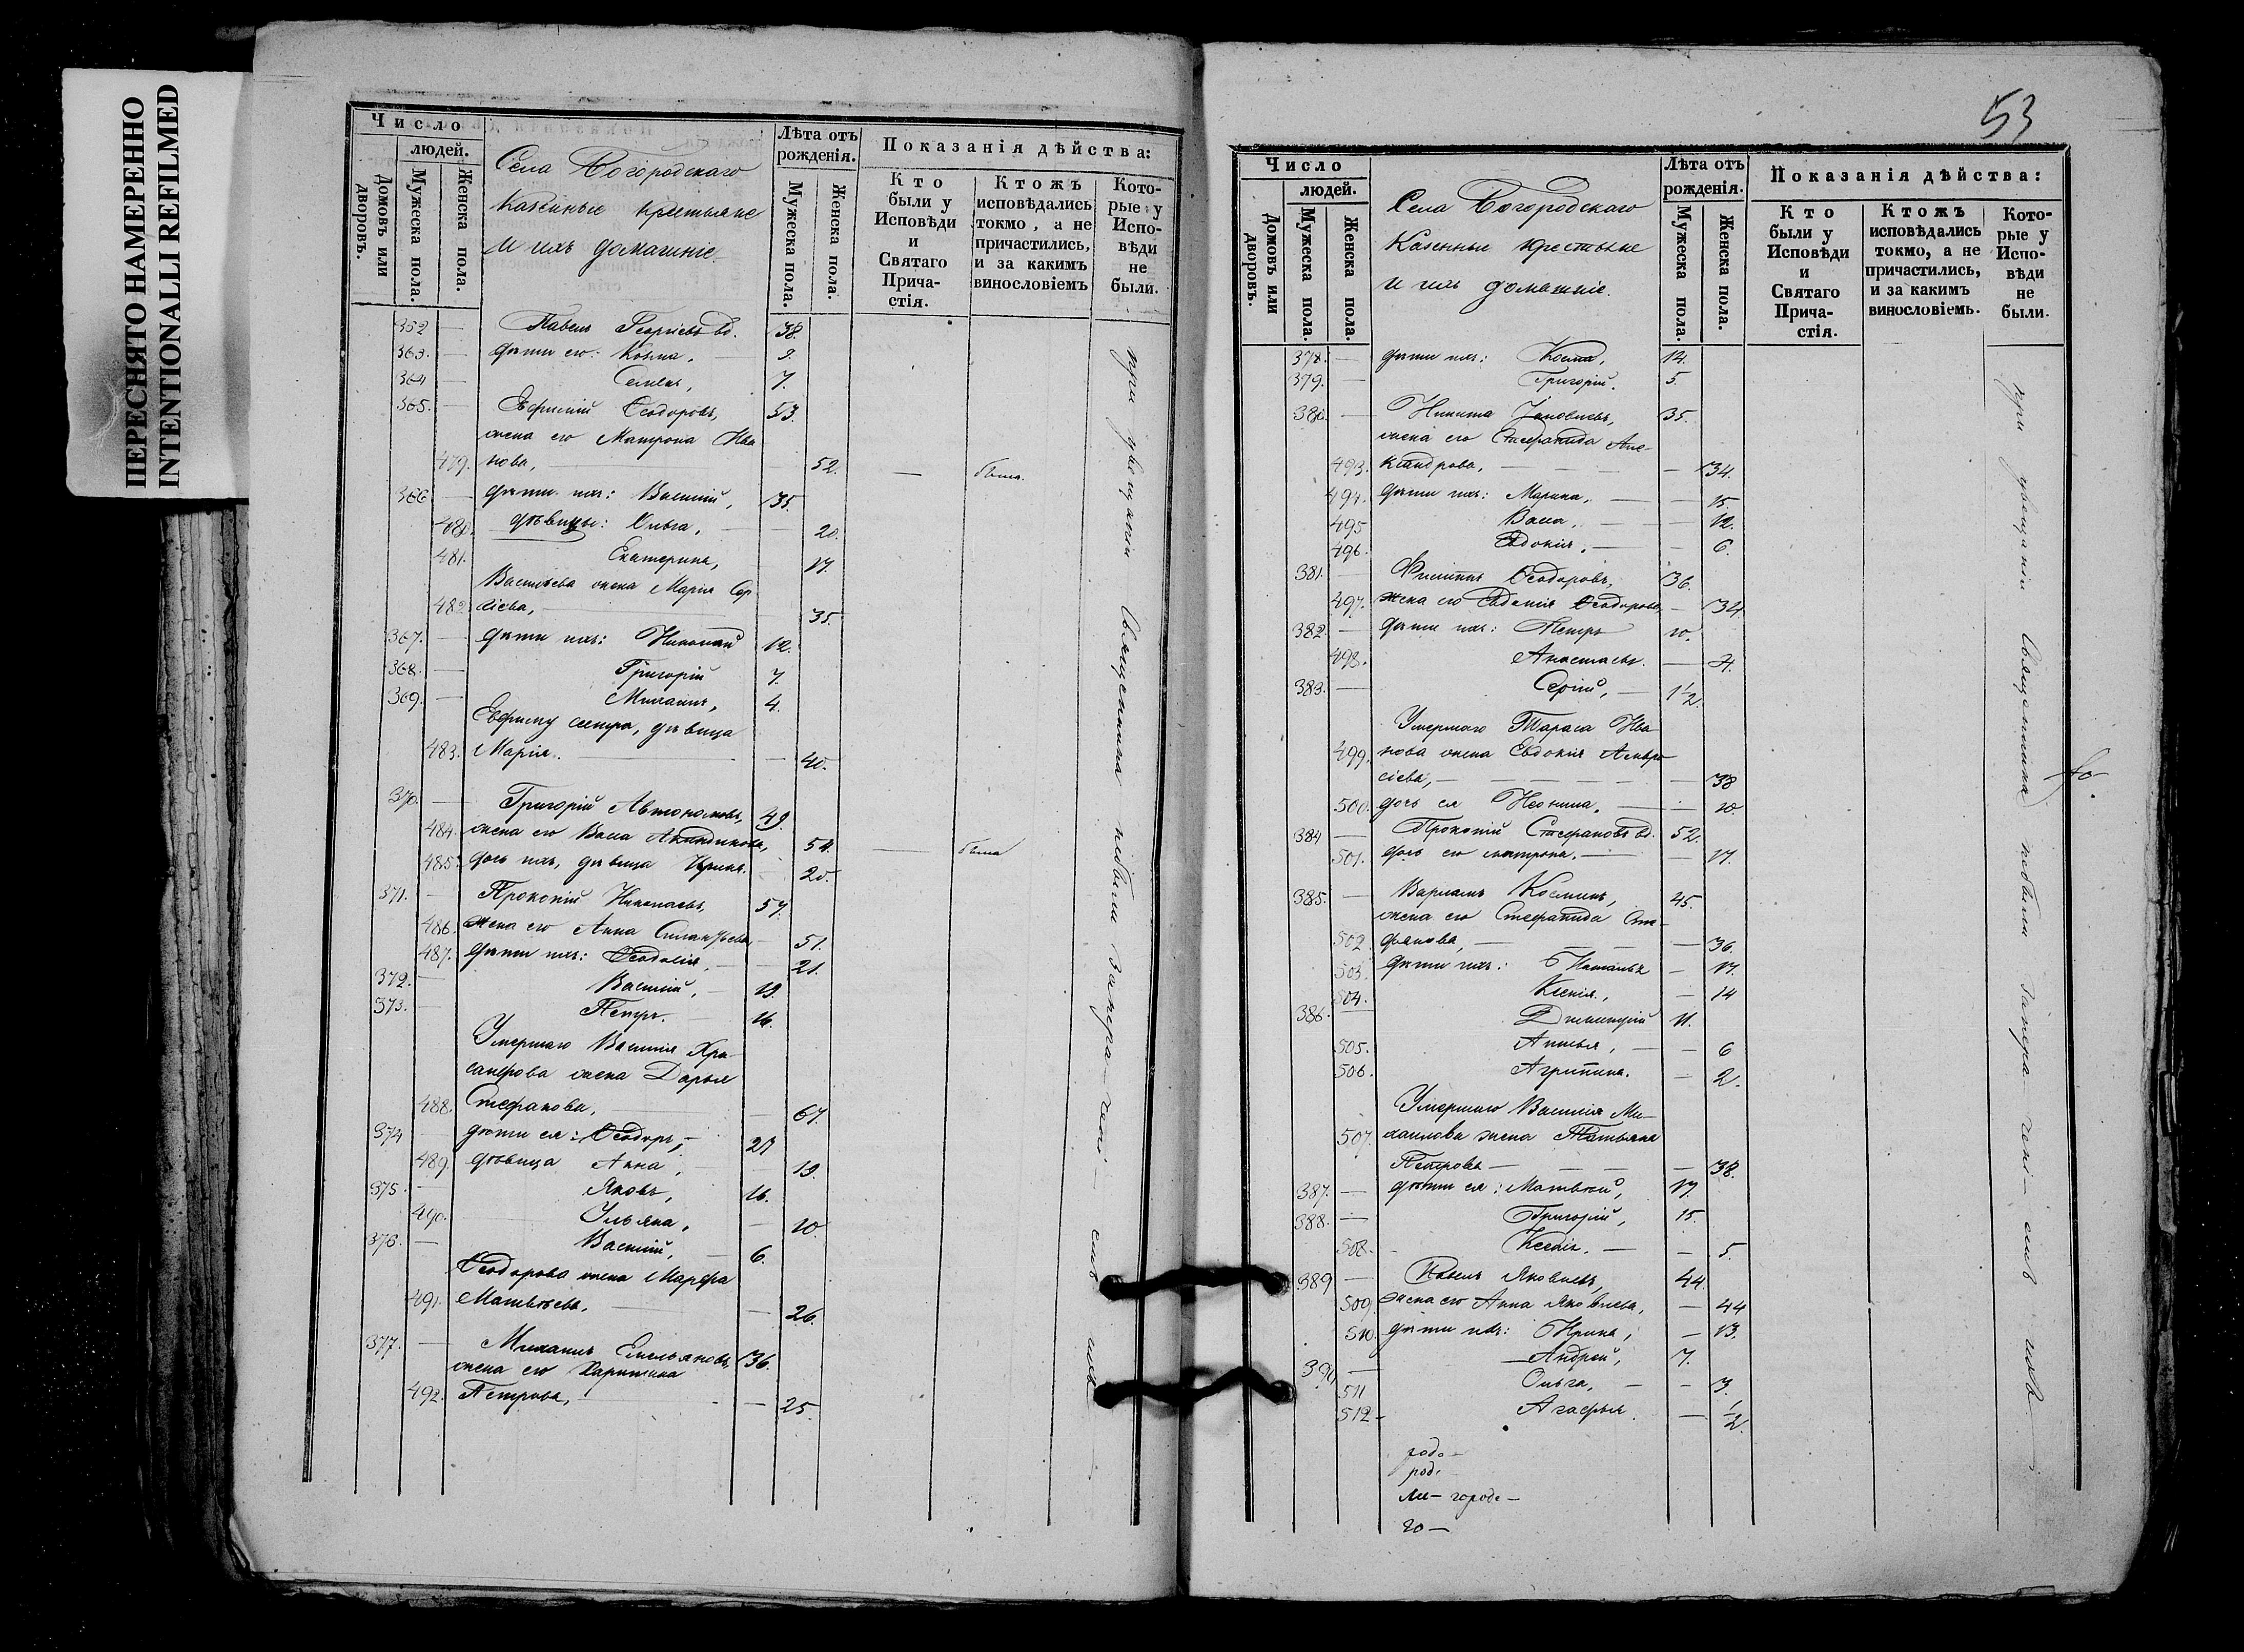 ПЕРЕСНЯТО НАМЕРЕННО
INTENTIONALLI REFILMED
Число
людей.
Домовъ или дворовъ.
Мужеска пола.
Женска пола.
Села Богородскаго
Казенные крестьяне
и ихъ домашніе
Лѣта отъ рожденія.
Мужеска пола.
Женска пола.
Показанія дѣйства:
Кто были у Исповѣди и Святаго Прича-стія.
Ктожъ исповѣдались токмо, а не причастились, и за какимъ винословіемъ
Кото-рые у Испо-вѣди не были.
362 — Павелъ Георгіевъ вд. 38.
363. — дѣти его: Козма, — 9.
364 — Семенъ, 7.
365. — Евфимій Ѳеодоровъ, 53.
жена его Матрона Ива
479. нова, — 52. — была.
366 — дѣти ихъ: Василій, 35.
480. дѣвицы: Ольга, — 20.
481. Екатерина, 17.
Васильева жена Марія Сер
482. гіева, — 35.
367. — дѣти ихъ: Николай 12.
368. — Григорій 7.
369. — Михаилъ, 4.
Евфиму сестра, дѣвица
483. Марія. — 40.
370. — Григорій Автономовъ, 49.
484. жена его Васса 54. — была
485. дочь ихъ, дѣвица Ирина. 20.
371. — Прокопій Николаевъ, 57.
486. жена его Анна 51.
487. дѣти ихъ: Ѳеодосія, — 21.
372. — Василій, — 19.
373. — Петръ. — 16.
Умершаго Василія Хри
санфова жена Дарья
488. Стефанова, — 67.
374 — дѣти ея: Ѳеодоръ, — 27
489. дѣвица Анна, — 19.
375. — Яковъ, 16.
490. Ульяна, — 10.
376. — Василій, — 6.
Ѳеодорова жена Марфа
491. Матвѣева, — 26.
377. — Михаилъ Емельяновъ, 36.
жена его Харитина
492. Петрова, — 25.
при увѣщаніи Священника небыли
53
Число
людей.
Домовъ или дворовъ.
Мужеска пола.
Женска пола.
Села Богородскаго
Казенные крестьяне
и ихъ домашніе.
Лѣта отъ рожденія.
Мужеска пола.
Женска пола.
Показанія дѣйства:
Кто были у Исповѣди и Святаго Прича-стія.
Ктожъ исповѣдались токмо, а не причастились, и за какимъ винословіемъ.
Кото-рые у Испо-вѣди не были.
378. — дѣти ихъ: Косма, 12.
379. — Григорій. 5.
380. — Никита Яковлевъ, 35.
жена его Стефанида Але-
493. ксандрова, — 34.
494. дѣти ихъ: Марина, — 15.
495 Васса, — 12.
496. Евдокія, — 6.
381. — Филиппъ Ѳеодоровъ, 36.
497. жена его Евдокія Ѳеодорова, — 34
382. — дѣти ихъ: Петръ 10.
498. Анастасья. — 4.
383. — Сергій, — 1½.
Умершаго Тараса Ива
499. нова жена Евдокія Амвро
сіева, — 38
500. дочь ея Неонила. — 10.
384 — Прокопій Стефановъ вд. 52.
501. дочь его Матрона. — 17.
385. — Варлаамъ Косминъ, 45.
жена его Стефанида Сте-
502. фанова, — 36.
503. дѣти ихъ: Наталья — 17.
504. Ксенія, — 14
386. — Димитрій 11.
505. Анисья, — 6
506. Агрипина. — 2.
Умершаго Василія Ми-
507. хаилова жена Татьяна
Петрова — 38.
387. — дѣти ея: Матвѣй, 17
388. — Григорій, 15.
508. Ксенія. — 5.
389 — Павелъ Яковлевъ, 44.
509. жена его Анна Яковлева, — 44
510. дѣти ихъ: Ирина, — 13.
390 — Андрей, 7.
511 Ольга, — 3.
512 — Агафья. — ½.
при увѣщаніи Священника небыли
родо —
родо
ли — городе —
го —